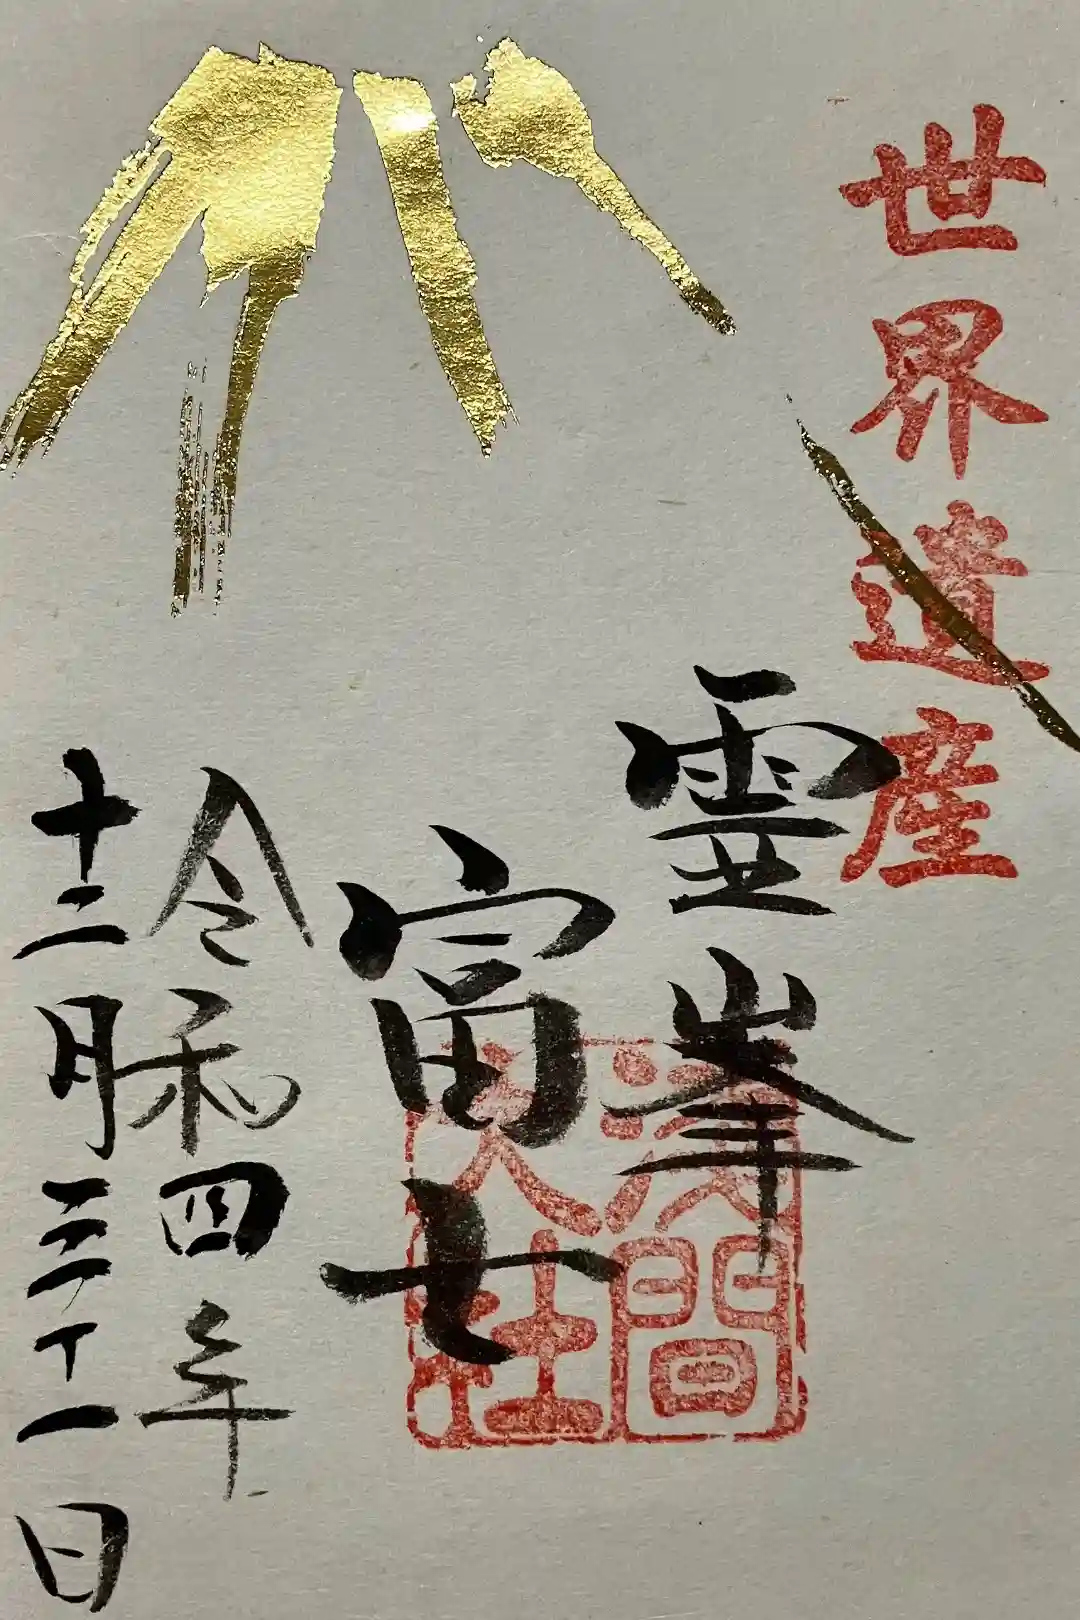 世界遺産
霊峯
富士
浅間
大社
令和四年
十二月三十一日